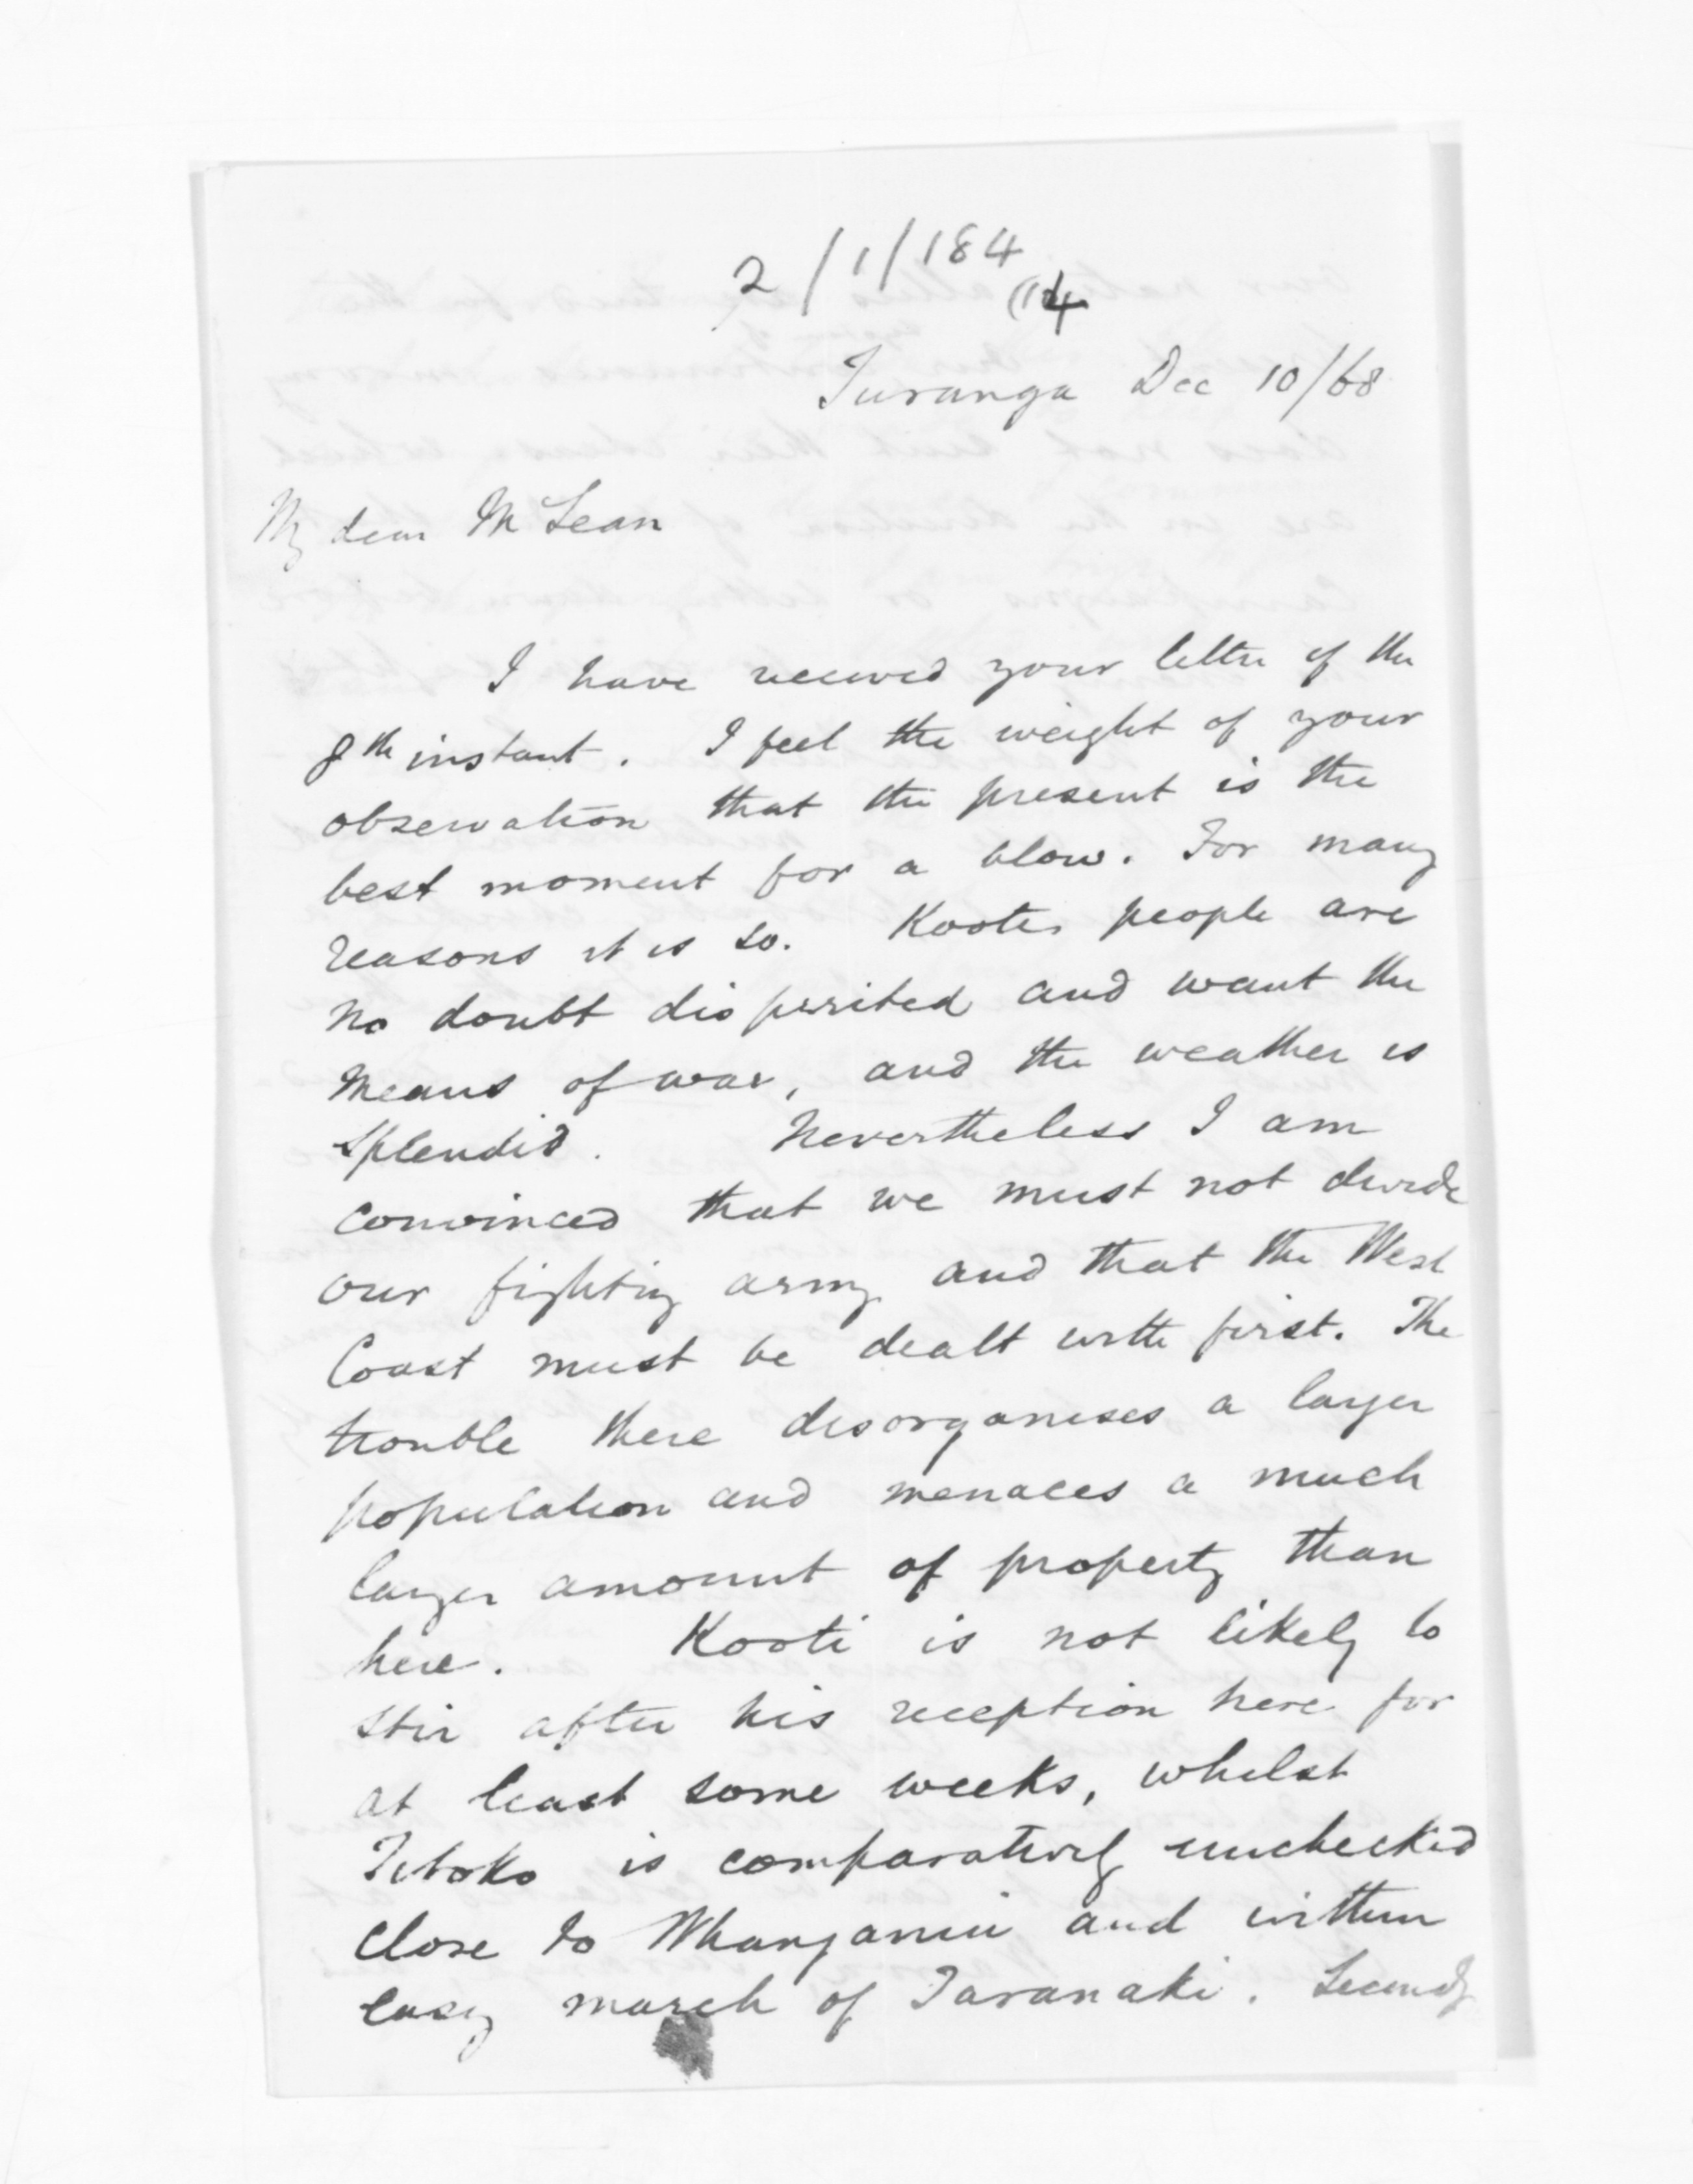 2/1/184
(14
Turanga Dec 10/68
My dear McLean
I have received your letter of the
8th instant. I feel the weight of your
observation that the present is the
best moment for a blow. For many
reasons it is so. Kootis people are
no doubt dispirited and want the
means of war, and the weather is
splendid. Nevertheless I am
convinced that we must not divide
our fighting army and that the West
Coast must be dealt with first. The
trouble there disorganises a larger
population and menaces a much
larger amount of property than
here. Kooti is not likely to
stir after his reception here for
at least some weeks, whilst
Titoko is comparatively unchecked
close to Whanganui and within
easy march of Taranaki. Secondly